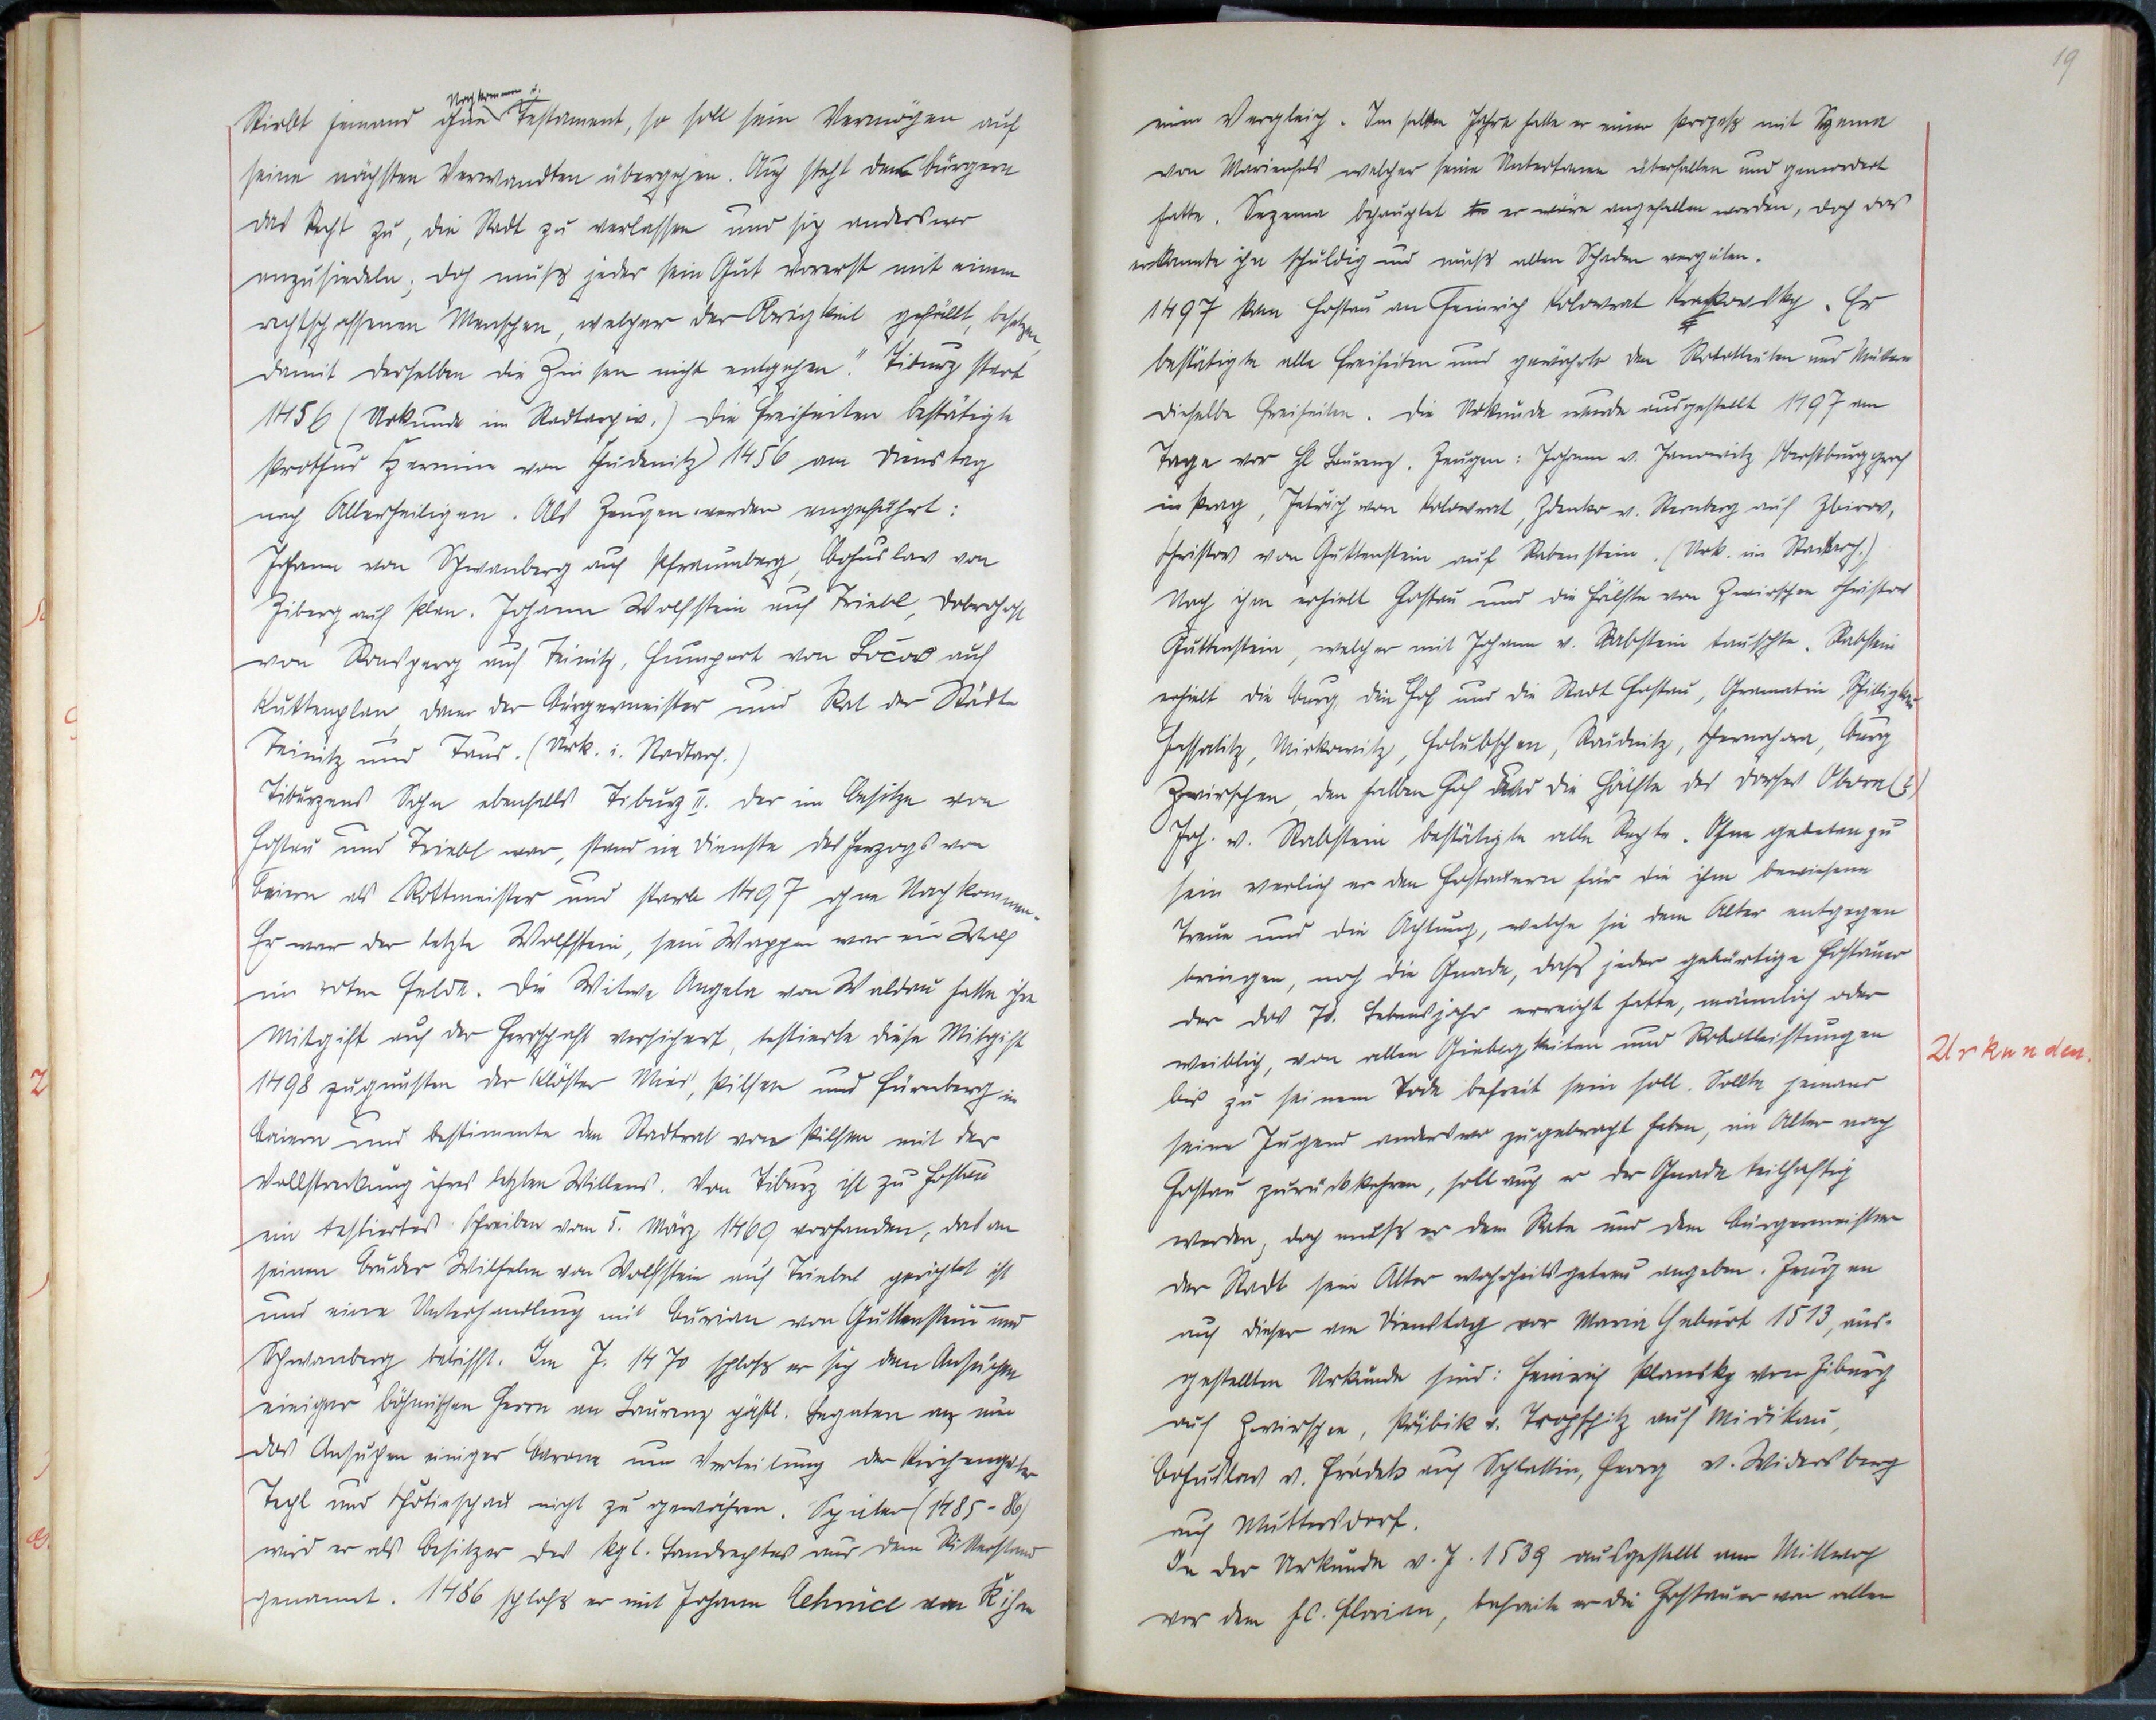 Nachkommen u.
Stirbt jemand ohne Testament, so soll sein Vermögen auf
seine nächsten Verwandten übergehen. Auch steht den Bürgern
das Recht zu, die Stadt zu verlassen und sich anderswo
anzusiedeln; doch muß jeder sein Gut vorerst mit einem
rechtschaffenen Menschen, welcher der Obrigkeit gefällt, besetzen,
damit derselben die Zinsen nicht entgehen". Tiburz starb
1456 (Urkunde im Stadtarchiv.) Die Freiheiten bestätigte
Prothus Czernin von Chudenitz 1456 am Dienstag
nach Allerheiligen. Als Zeugen werden angeführt:
Johann von Schwanberg auf Pfraumberg, Bohuslav von
Ziberg auf Plan. Johann Wolfstein auf Triebl, Dobrohost
von Ronsperg auf Teinitz, Humpert von Bočov auf
Kuttenplan, dann der Bürgermeister und Rat der Städte
Teinitz und Taus. (Urk. i. Stadtarch.)
Tiburzens Sohn ebenfalls Tiburz II. der im Besitze von
Hostau und Triebl war, stand im Dienste des Herzogs von
Baiern als Rottmeister und starb 1497 ohne Nachkommen.
Er war der letzte Wolfstein, sein Wappen war ein Wolf
im roten Felde. Die Witwe Angela von Waldau hatte ihre
Mitgift auf der Herrschaft versichert, testierte diese Mitgift
1498 zugunsten der Klöster Mies, Pilsen und Fürnberg in
Baiern und bestimmte den Stadtrat von Pilsen mit der
Vollstreckung ihres letzten Willens. Von Tiburz ist zu Hostau
ein testiertes Schreiben vom 5. März 1469 vorhanden, das an
seinen Bruder Wilhelm von Wolfstein auf Triebel gerichtet ist
und eine Unterhandlung mit Burian von Guttenstein und
Schwanberg betrifft. Im J. 1470 schloß er sich dem Ansuchen
einiger böhmischen Herrn an Laurenz päpstl. Legaten an um
das Ansuchen einiger Barone um Verteilung der Kirchengüter
Techl und Chotieschau nicht zu gewähren. Später (1485-86)
wird er als Besitzer des kgl. Landrechtes aus dem Ritterstand
genannt. 1486 schloß er mit Johann von
19
einen Vergleich. Im selben Jahre hatte er einen Prozeß mit Sezema
von Marienfels welcher seine Untertanen überfallen und gemordert
hatte. Sezema behauptet er wäre angefallen worden, doch das
erkannte ihn schuldig und muß allen Schaden vergüten.
1497 kam Hostau an Heinrich Kolowrat Krakowsky. Er
bestätigte alle Freiheiten und gewährte den Robotleuten und
dieselbe Freiheiten. Die Urkunde wurde ausgestellt 1497 am
Tage vor hl Laurenz. Zeugen: Johann v. Janowitz Oberstburggraf
in Prag, Jetřich von Kolowrat, Zdenko v. Sternberg auf Zbirov,
Christov von Guttenstein auf Rabenstein. (Urk. im Stadtarch.)
Nach ihm erhielt Hostau und die Hälfte von Zwirschen Christov
Guttenstein, welcher mit Johann v. Rabstein tauschte. Rabstein
erhielt die Burg, den Hof und die Stadt Hostau, Gramatin, Schilligkau
Hassatitz, Mirkowitz, Holubschen, Raudnitz, Tschernahora, Burg
Zwirschen, den halben Hof und die Hälfte des Dorfes Oborn (?)
Joh. v. Rabstein bestätigte alle Rechte. Ohne gebeten zu
sein verlieh er den Hostauern für die ihm bewiesene
Treue und die Achtung, welche sie dem Alter entgegen
bringen, noch die Gnade, daß jeder gebürtige Hostauer
der das 70. Lebensjahr erreicht hatte, männlich oder
weiblich, von allen Giebigkeiten und Robotleistungen
bis zu seinem Tode befreit sein soll. Sollte jemand
seine Jugend anderswo zugebracht haben, im Alter nach
Hostau zurückkehren, soll auch er der Gnade teilhaftig
werden, doch muß er dem Rate und dem Bürgermeister
der Stadt sein Alter wahrheitsgetreu angeben. Zeugen
auf dieser am Dienstag vor Maria Geburt 1513, aus-
gestellten Urkunde sind: Heinrich Plansky von Ziburg
auf Zwirschen, Přibik v. Tropschitz auf Midikau,
Bohuslav v. Hradek auf Schlattin, Georg v. Widersberg
auf Muttersdorf.
In der Urkunde v. J. 1539 ausgestellt am Mittwoch
vor dem hl. Florian, befreite er die Hostauer von allen
Urkunden.